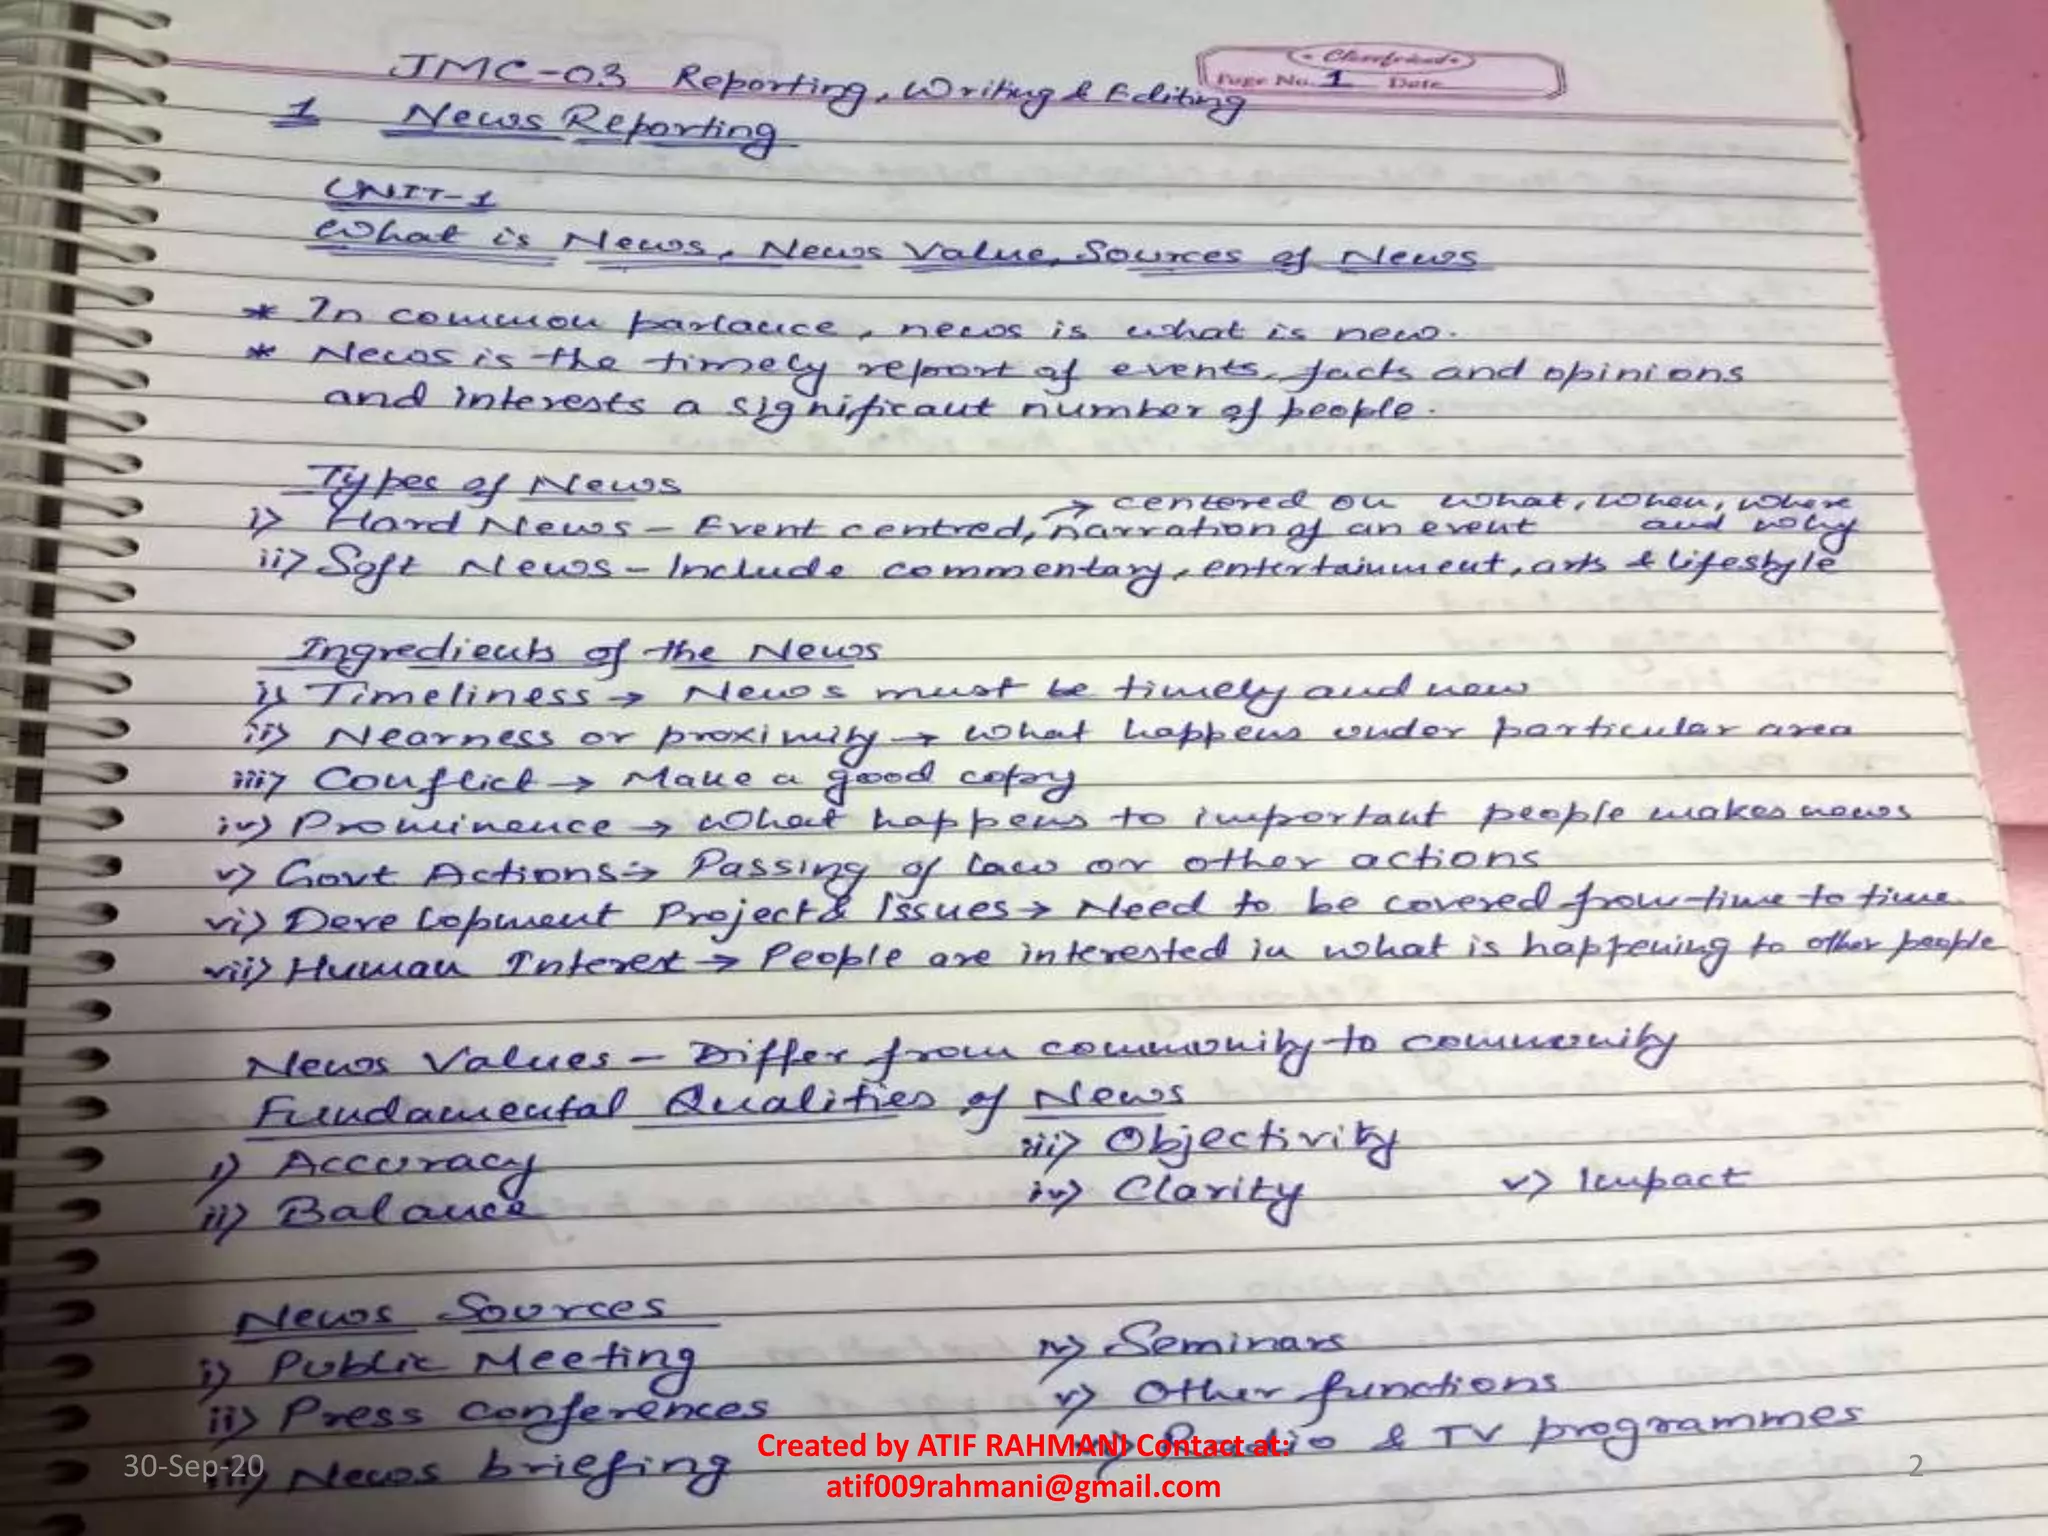 Classfriend
Page No. 1 Date
JMC-03 Reporting, Writing & Editing
1 News Reporting
UNIT-1
What is News, News Value, Sources of News
* In common parlance, news is what is new.
* News is the timely report of events, facts and opinions
and interests a significant number of people.
Types of News
→ centered on what, when, where
and why
i) Hard News - Event centred, narration of an event
ii) Soft News - Include commentary, entertainment, arts & lifestyle
Ingredients of the News
i) Timeliness → News must be timely and new
ii) Nearness or proximity → What happens under particular area
iii) Conflict → Make a good copy
iv) Prominence → What happens to important people makes news
v) Govt Actions → Passing of law or other actions
vi) Development Project & Issues → Need to be covered from time to time.
vii) Human Interest → People are interested in what is happening to other people
News Values - Differ from community to community
Fundamental Qualities of News
i) Accuracy
ii) Balance
iii) Objectivity
iv) Clarity
v) Impact
News Sources
i) Public Meeting
ii) Press conferences
iii) News briefing
iv) Seminars
v) Other functions
vi) Radio & TV programmes
30-Sep-20
Created by ATIF RAHMANI Contact at:
atif009rahmani@gmail.com
2